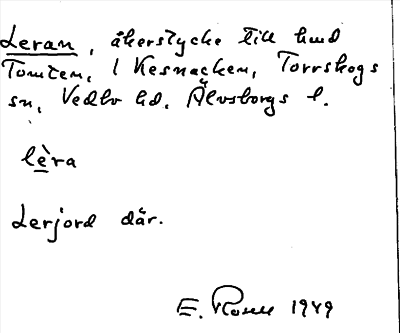 Leran, åkerstycke till hmd
Tomten, 1 Kesnacken, Torrskogs
sn, Vedbo hd, Älvsborgs l.
lèra
Lerjord där.
E. Rosell 1949